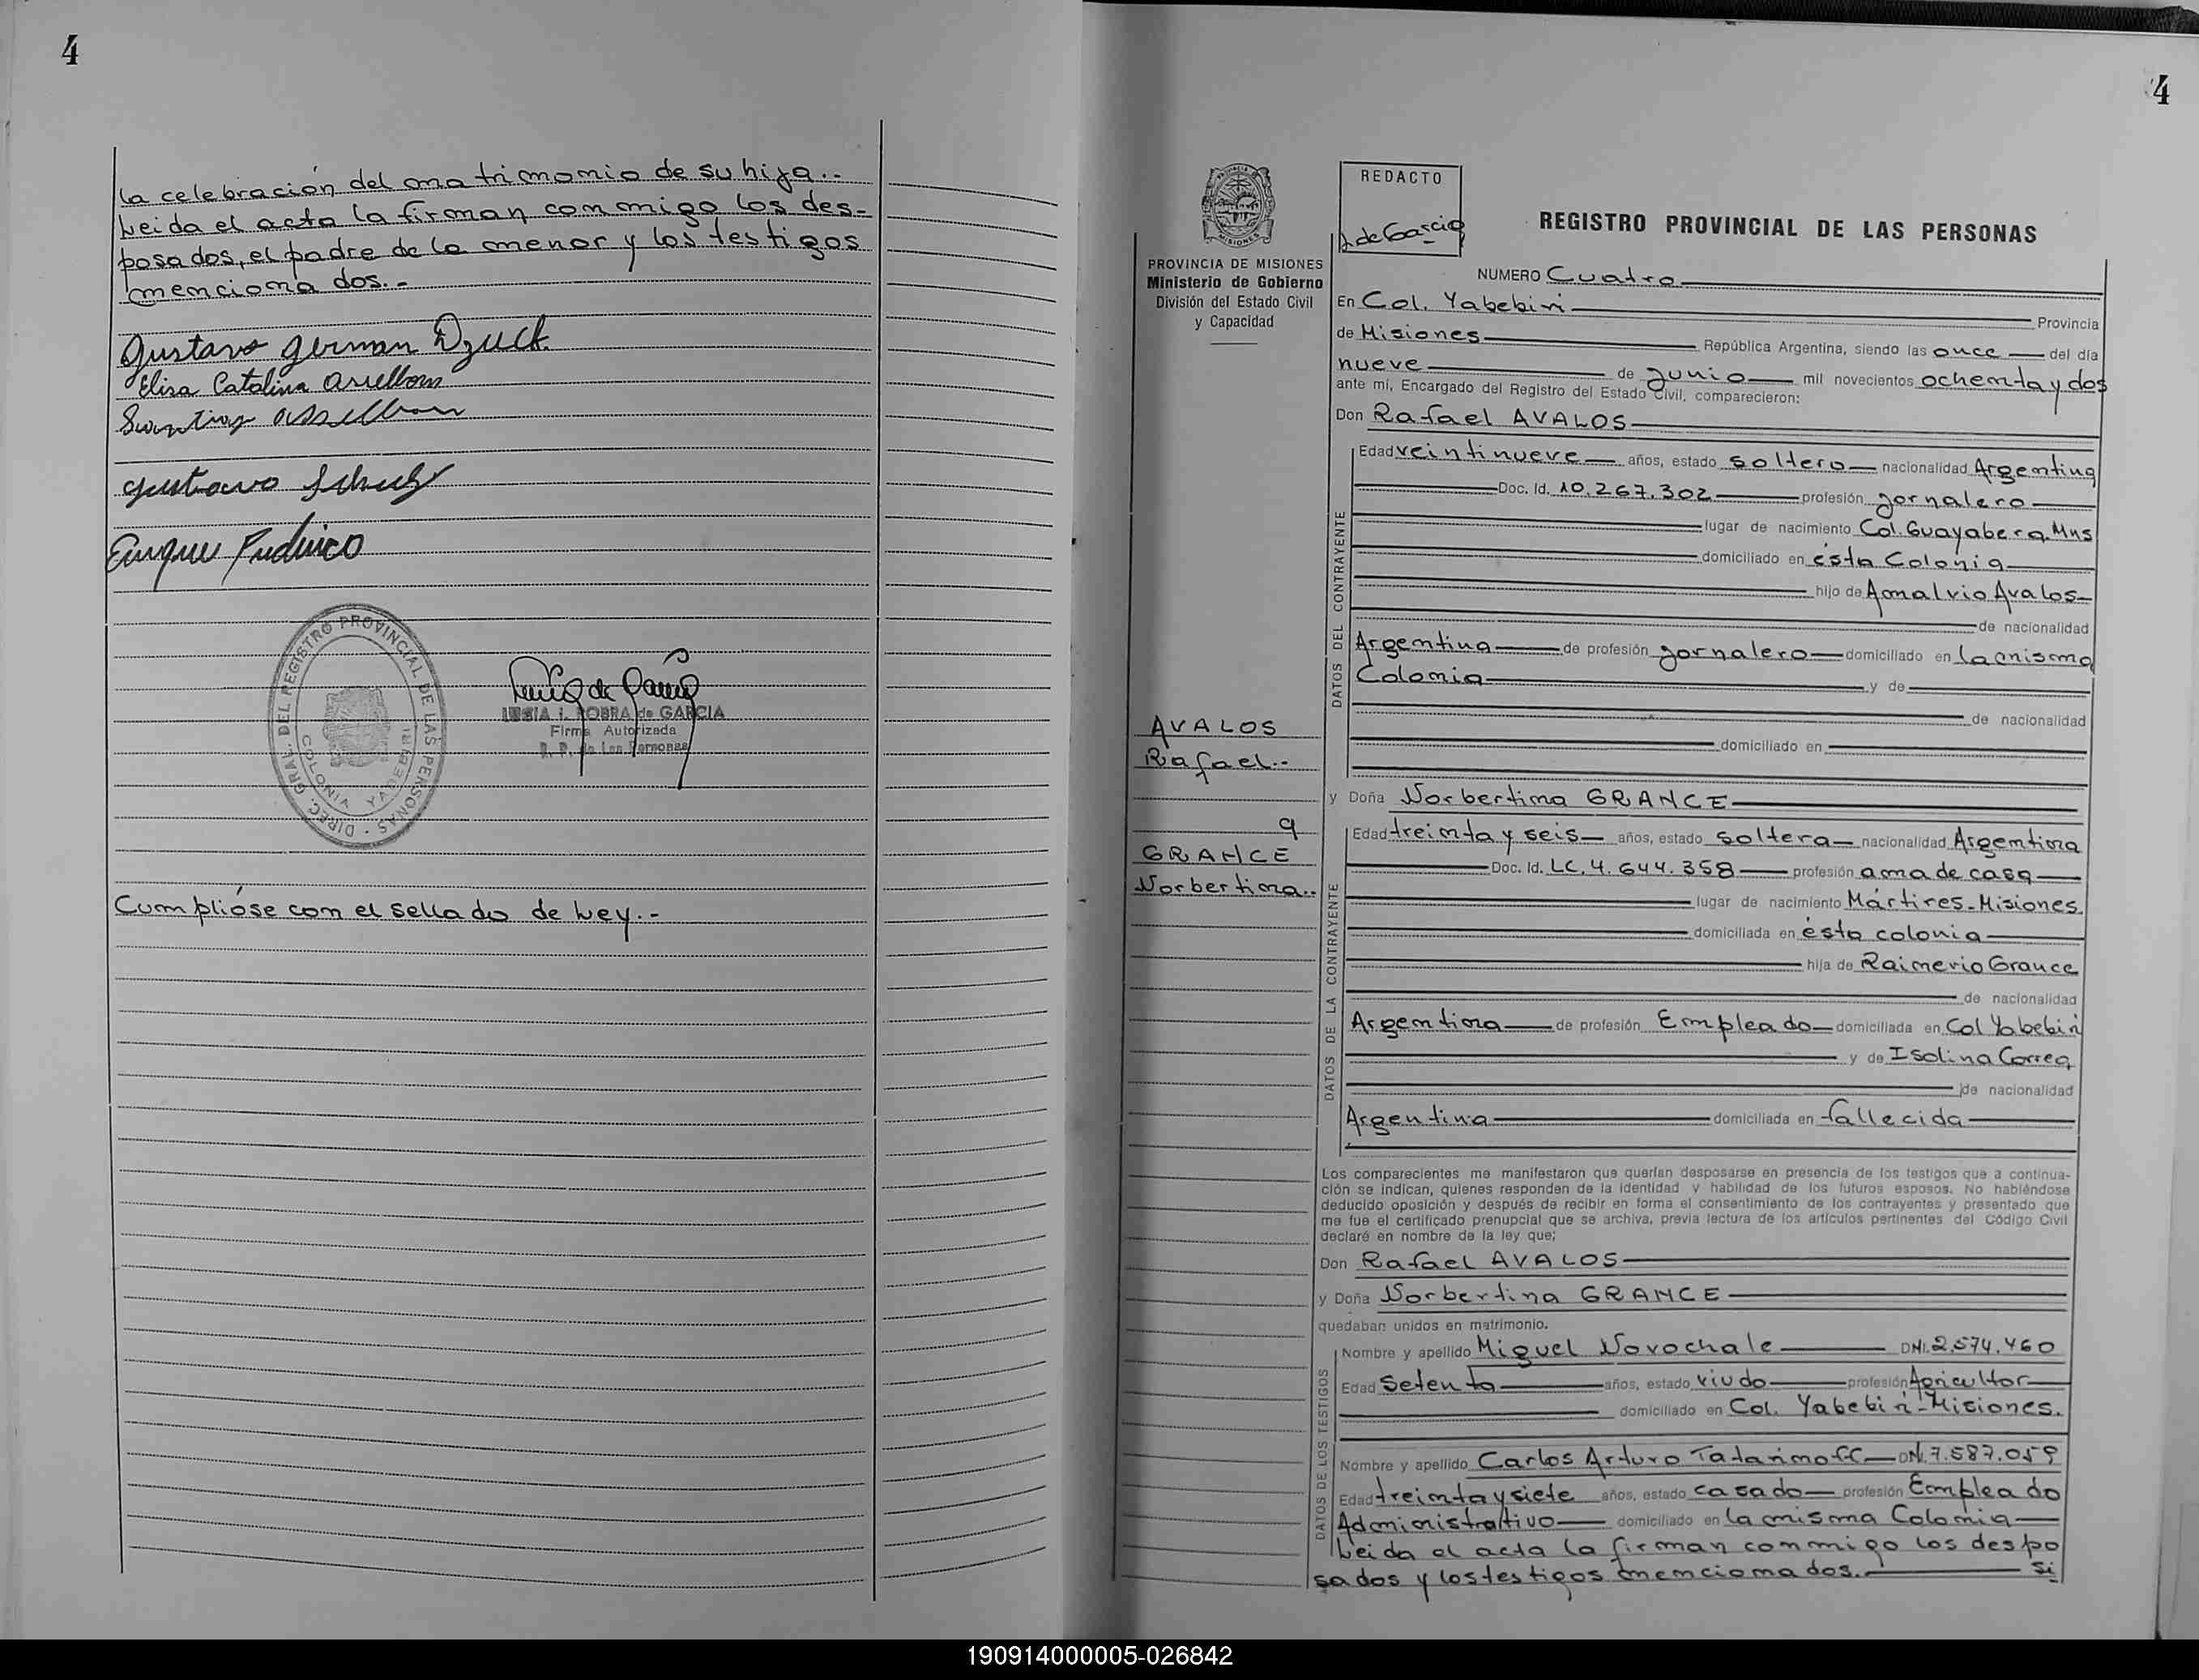 4
la celebración del matrimonio de su hija.-
Leida el acta la firman conmigo los des-
posados, el padre de la menor y los testigos
mencionados.-
Gustavo German Dzuck
Elisa Catalina
Gustavo
Enrique
DIREC. GRAL. DEL REGISTRO PROVINCIAL DE LAS PERSONAS
COLONIA YABEBIRI
LUCIA I. POBRA de GARCIA
Firma Autorizada
R. P. de Las Personas
Cumplióse con el sellado de Ley.-
4
MISIONES
PROVINCIA DE MISIONES
Ministerio de Gobierno
División del Estado Civil
y Capacidad
REDACTO
L de Garcia
REGISTRO PROVINCIAL DE LAS PERSONAS
NUMERO Cuatro
En Col. Yabebiri Provincia
de Misiones República Argentina, siendo las once del día
nueve de Junio mil novecientos ochenta y dos
ante mí, Encargado del Registro del Estado Civil, comparecieron:
Don Rafael AVALOS
DATOS DEL CONTRAYENTE
Edad veintinueve años, estado soltero nacionalidad Argentina
Doc. Id. 10.267.302 profesión jornalero
lugar de nacimiento Col. Guayabera. Mns
domiciliado en ésta Colonia
hijo de Amalvio Avalos
de nacionalidad
Argentina de profesión jornalero domiciliado en la misma
Colonia y de
de nacionalidad
domiciliado en
AVALOS
Rafael.-
a
GRANCE
Norbertina.-
y Doña Norbertina GRANCE
DATOS DE LA CONTRAYENTE
Edad treinta y seis años, estado soltera nacionalidad Argentina
Doc. Id. LC. 4.644.358 profesión ama de casa
lugar de nacimiento Mártires-Misiones.
domiciliada en ésta colonia
hija de Raimerio Grance
de nacionalidad
Argentina de profesión Empleado domiciliada en Col Yabebiri
y de Isolina Correa
de nacionalidad
Argentina domiciliada en fallecida
Los comparecientes me manifestaron que querían desposarse en presencia de los testigos que a continua-
ción se indican, quienes responden de la identidad y habilidad de los futuros esposos. No habiéndose
deducido oposición y después de recibir en forma el consentimiento de los contrayentes y presentado que
me fue el certificado prenupcial que se archiva, previa lectura de los artículos pertinentes del Código Civil
declaré en nombre de la ley que;
Don Rafael AVALOS
y Doña Norbertina GRANCE
quedaban unidos en matrimonio.
DATOS DE LOS TESTIGOS
Nombre y apellido Miguel Novochale DNI. 2.574.460
Edad Setenta años, estado viudo profesión Agricultor
domiciliado en Col. Yabebiri-Misiones.
Nombre y apellido Carlos Arturo Tatarinoff DNI. 7.587.059
Edad treinta y siete años, estado casado profesión Empleado
Administrativo domiciliado en la misma Colonia
Leida el acta la firman conmigo los despo
sados y los testigos mencionados. Si
190914000005-026842